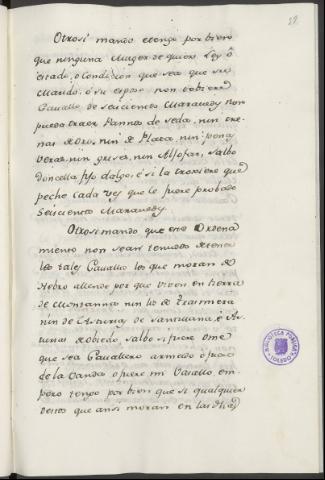 22
Otrosi mando e tengo por bien
que ninguna Muger de qualquier Ley ó
estado, o Condicion que sea que su
Marido, ó su esposo non obiere
Cavallo de seiscientos Maravedis non
pueda traer Pannos de seda, nin tre-
nas de oro, nin de Plata, nin penas
Veras, nin grises, nin Aljofar, salvo
doncella fija dalgo, é si la troxiere que
peche cada vez que le fuere probado
seiscientos Maravedis
Otrosi mando que este Ordena
miento non sean tenudos de tener
los tales Cavallos los que moran de
Hebro allende por que viven en tierra
de Montannas nin los de Trasmiera
nin de Asturias de Santillana, é As-
turias de Obiedo, salvo si fuere ome
que sea Cavallero armado ó fuere
de la Vanda o fuere mi Vasallo em-
pero tengo por bien que si qualquier
destos que ansi moran en las dichas
BIBLIOTECA PUBLICA
TOLEDO